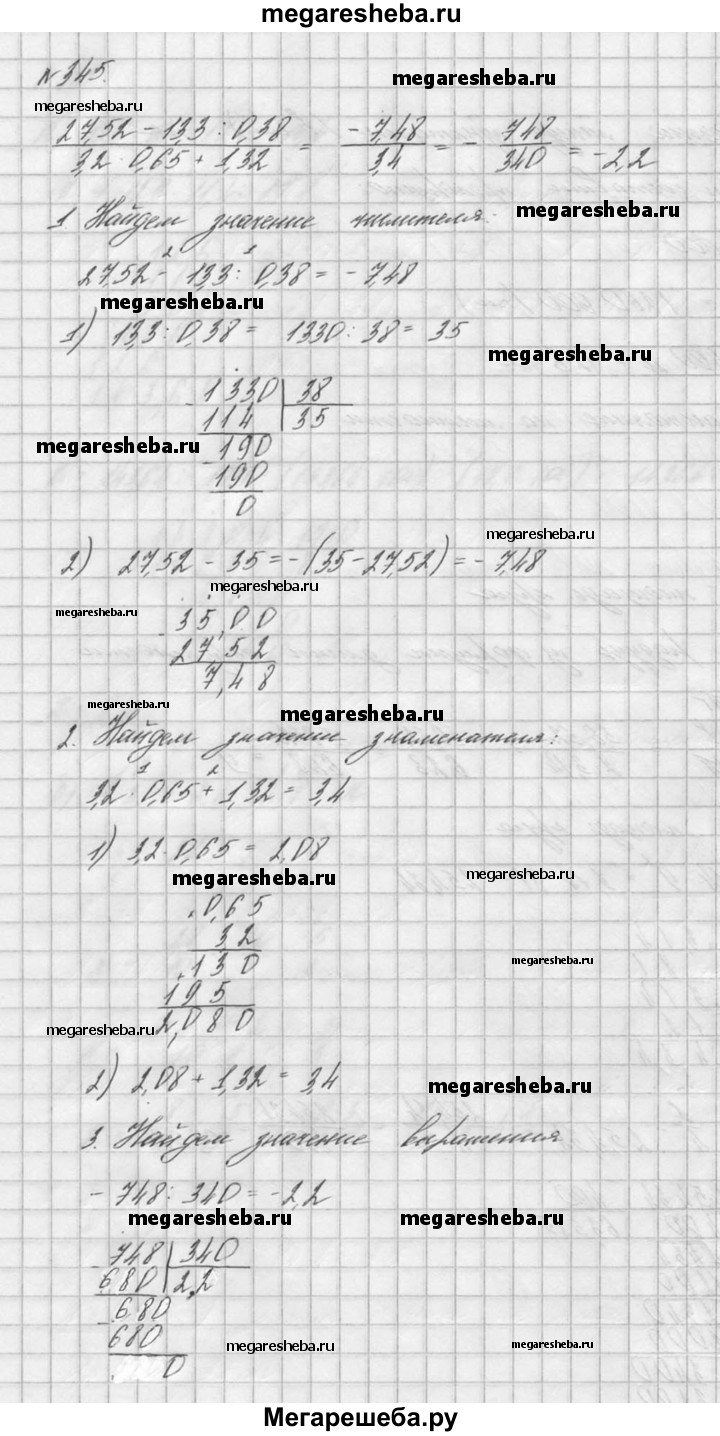 megaresheba.ru
№ 345.
megaresheba.ru
megaresheba.ru
27,52 - 13,3 : 0,38 / 3,2 · 0,65 + 1,32 = -7,48 / 3,4 = - 748 / 340 = -2,2
1. Найдем значение числителя:
megaresheba.ru
2 1
27,52 - 13,3 : 0,38 = -7,48
megaresheba.ru
1) 13,3 : 0,38 = 1330 : 38 = 35
megaresheba.ru
- 1330 | 38
114 | 35
megaresheba.ru
- 190
190
0
megaresheba.ru
2) 27,52 - 35 = -(35 - 27,52) = -7,48
megaresheba.ru
megaresheba.ru
- 35,00
27,52
7,48
megaresheba.ru
megaresheba.ru
2. Найдем значение знаменателя:
1 2
3,2 · 0,65 + 1,32 = 3,4
1) 3,2 · 0,65 = 2,08
megaresheba.ru
megaresheba.ru
0,65
3,2
130
megaresheba.ru
195
2,080
megaresheba.ru
2) 2,08 + 1,32 = 3,4
megaresheba.ru
3. Найдем значение выражения
- 748 : 340 = -2,2
megaresheba.ru
megaresheba.ru
- 748 | 340
680 | 2,2
- 680
680
megaresheba.ru
megaresheba.ru
0
Мегарешеба.ру